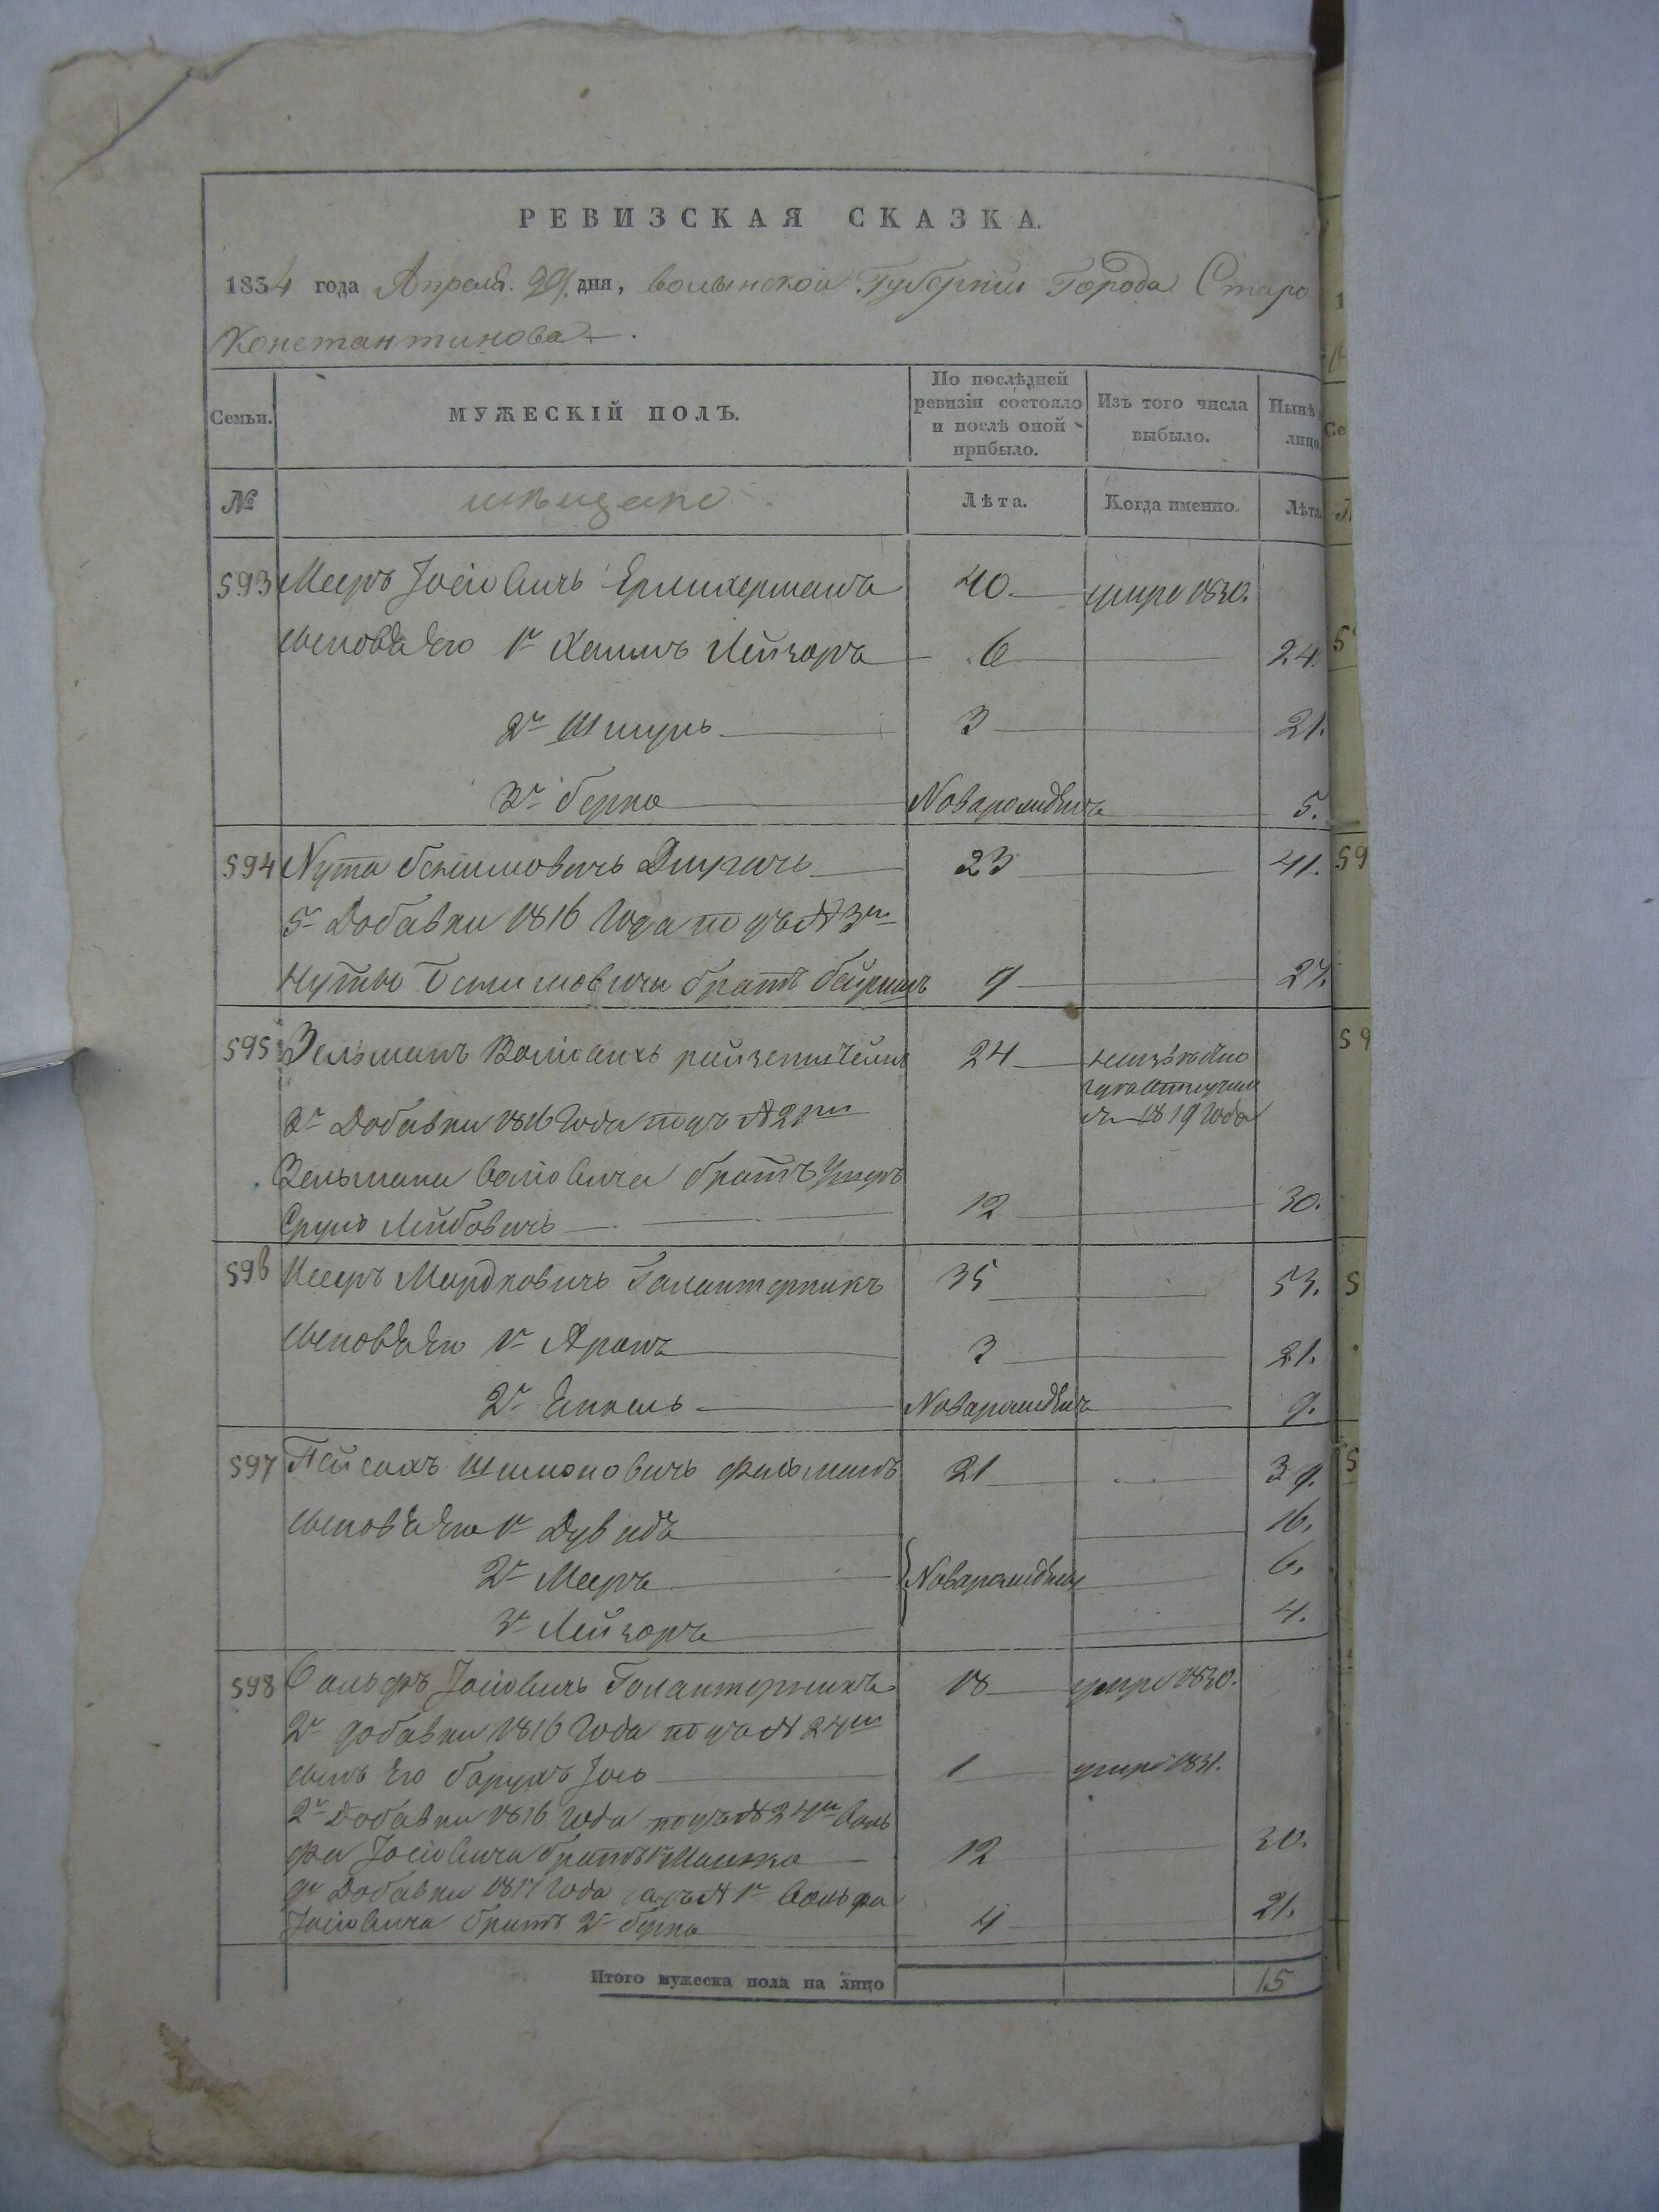 РЕВИЗСКАЯ СКАЗКА.
1834 года Апреля 29 дня, волынской Губернии Города Старо
Константинова
Семьи. МУЖЕСКІЙ ПОЛЪ. По послѣдней ревизіи состояло и послѣ оной прибыло. Изъ того числа выбыло. Нынѣ лицо
№ мѣщане Лѣта. Когда именно. Лѣта
593 Мееръ Іосіовичь 40 умре 1830.
сыновья его 1й Хаимъ Лейзоръ 6 24.
2й Шмуль 3 21.
3й берко Новарожденъ 5.
594 Нута 23 41.
5й Добавки 1816 Года подъ № 3м
Нуты братъ 9 27.
595 Зельманъ 24 неизвѣстно
с 1819 Года
2й Добавки 1816 Года подъ № 2м
Зельмана братъ
Сруль Лейбовичь 12 30.
596 Мееръ Мордковичь Галантерникъ 35 53.
сыновья его 1й Аронъ 3 21.
2й Новарожденъ 9.
597 Пейсахъ Шимоновичь Фельманъ 21 39.
сыновья его 1й Дувидъ 16.
2й Мееръ Новарожденны 6.
3й Лейзоръ 4.
598 Вольфъ Іосіовичь Галантерникъ 18 умре 1830.
2й добавки 1816 Года подъ № 24м
сынъ его борухъ Іось 1 умре 1831.
2й Добавки 1816 Года подъ № 24м Воль
фа Іосіовича братъ 1й Мошко 12 30.
Добавки 1817 Года № 1м Вольфа
Іосіовича братъ 2й берко 4 21.
Итого мужеска пола на лицо 15